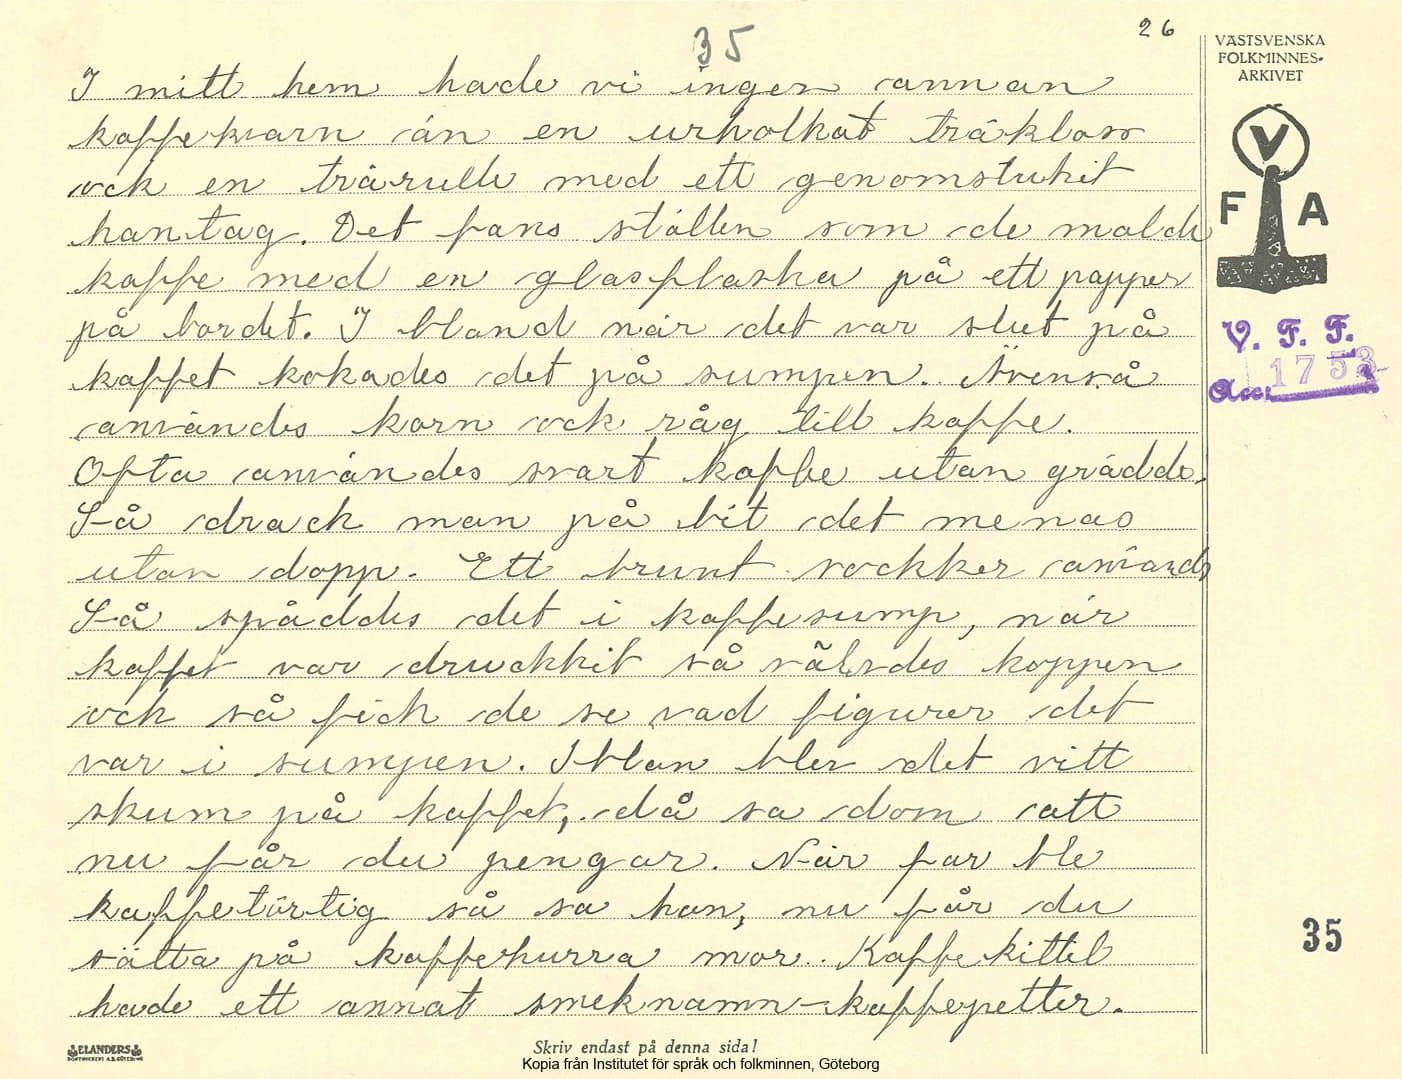 26
35
I mitt hem hade vi ingen annan
kaffekvarn än en urholkat träkloss
ock en trärulle med ett genomstukit
hantag. Det fans ställen som de malde
kaffe med en glasflaska på ett papper
på bordet. I bland när det var slut på
kaffet kokades det på sumpen. Ävenså
användes korn ock råg till kaffe.
Ofta användes svart kaffe utan grädde.
Så drack man på bit det menas
utan dopp. Ett brunt sockker användes
Så spåddes det i kaffesump, när
kaffet var druckkit så välvdes koppen
ock så fick de se vad figurer det
var i sumpen. Iblan blev det vitt
skum på kaffet, då sa dom att
nu får du pengar. När far ble
kaffetörtig så sa han, nu får du
sätta på kaffehurra mor. Kaffekittel
hade ett annat smeknamn-kaffepetter.
VÄSTSVENSKA
FOLKMINNES-
ARKIVET
V
F A
V. F. F.
Acc. 1753
35
ELANDERS
BOKTRYCKERI A.B. GÖTEBORG
Skriv endast på denna sida!
Kopia från Institutet för språk och folkminnen, Göteborg